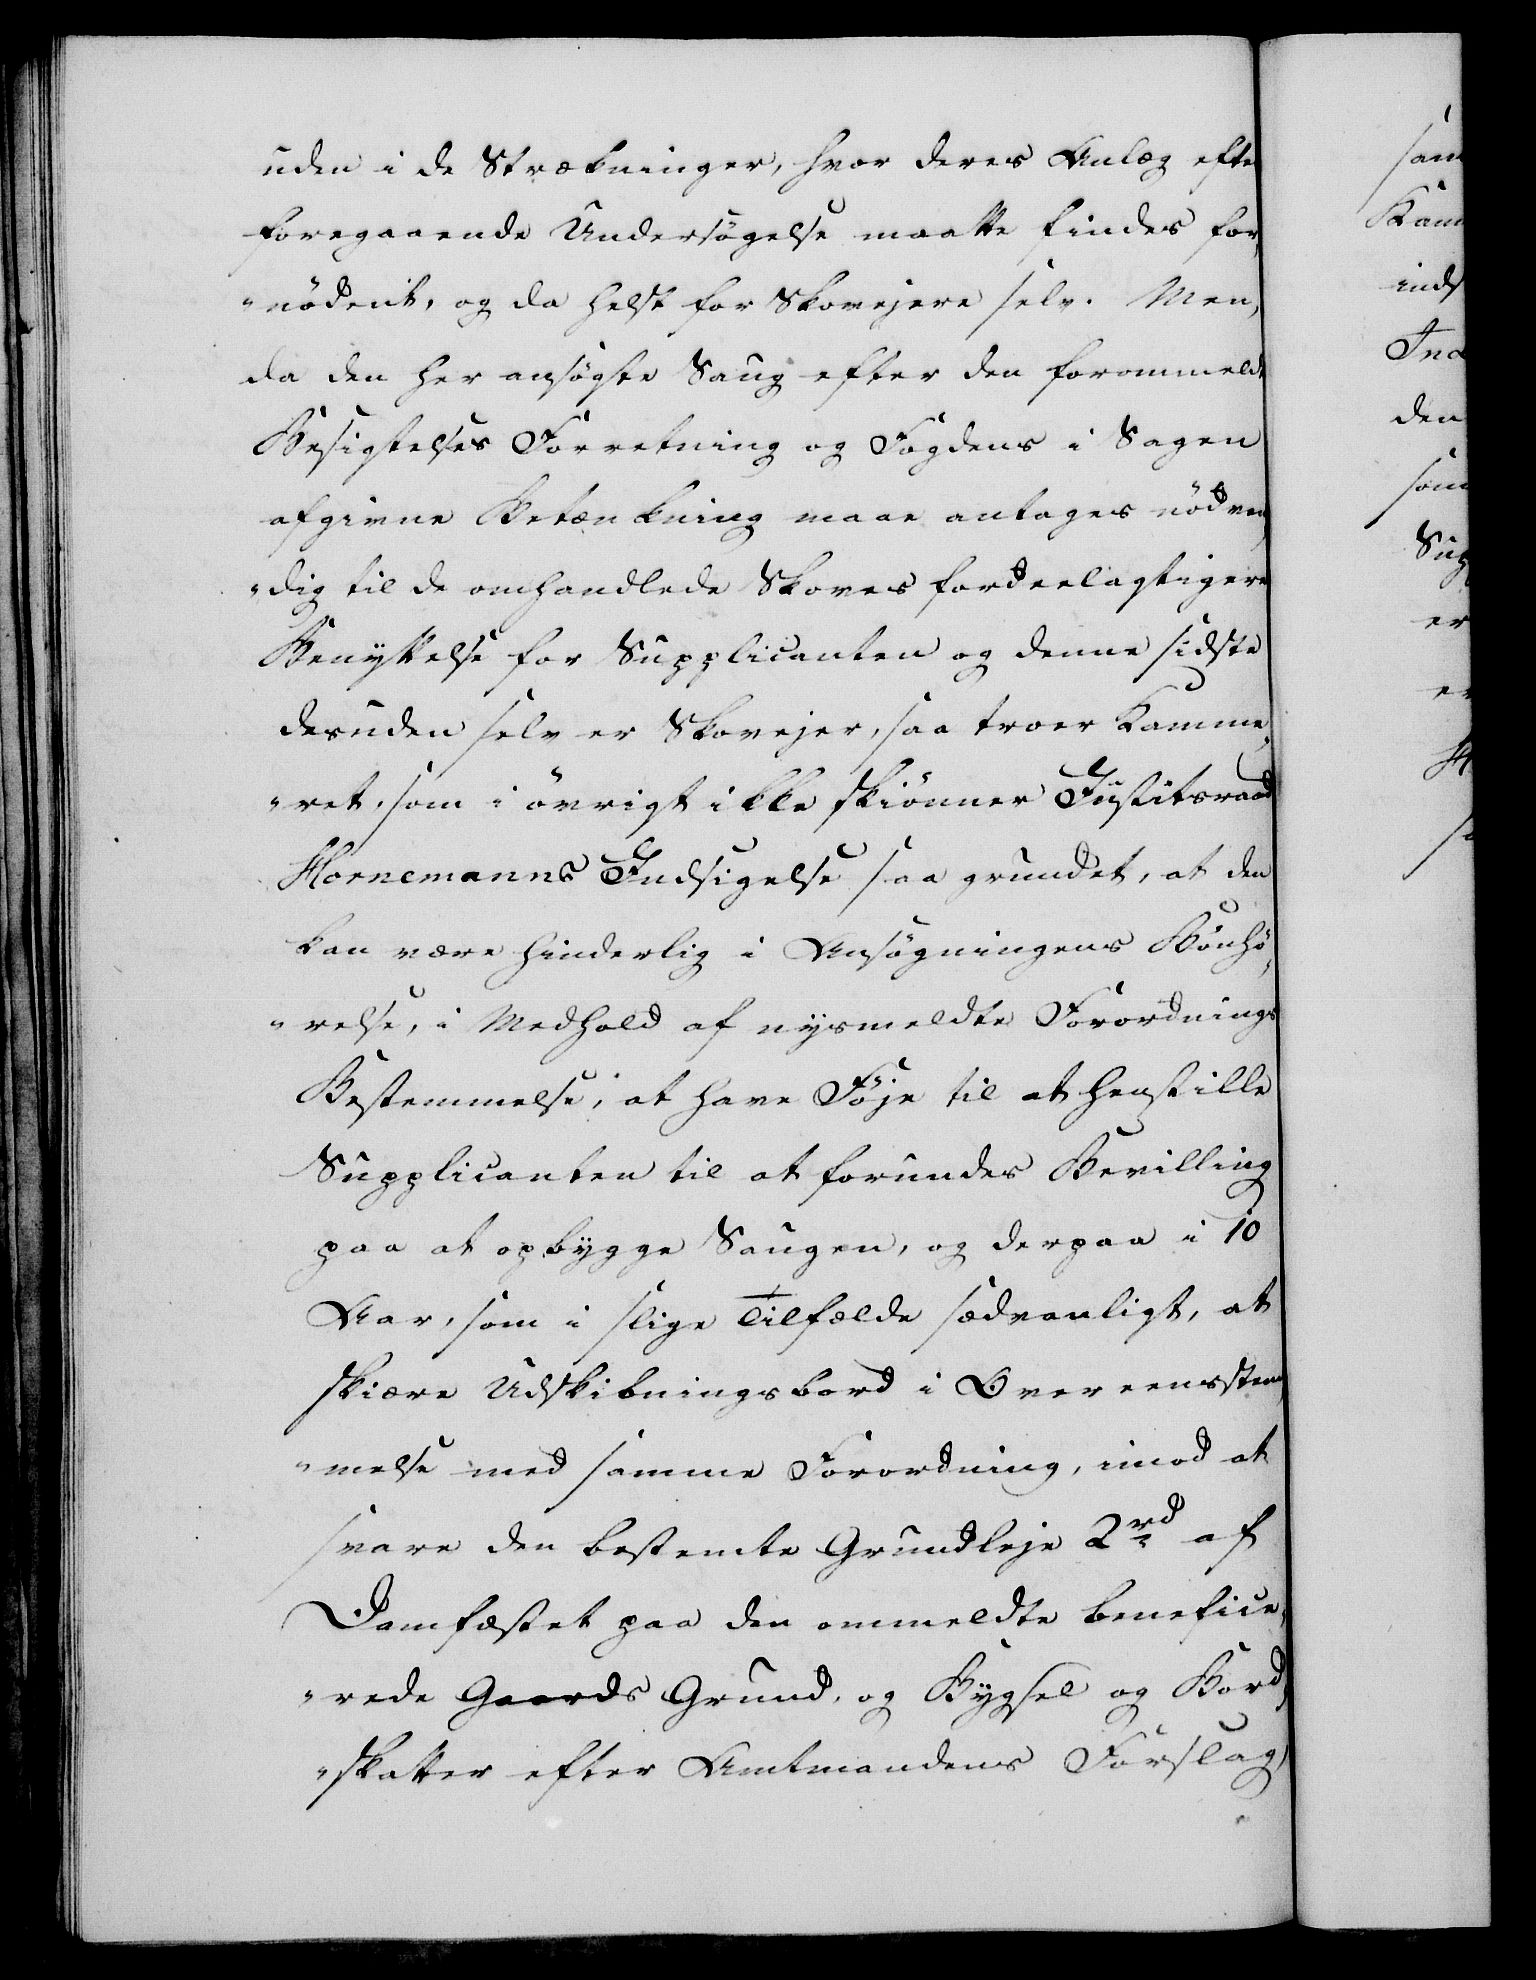 uden i de Strækninger, hvor deres Anlæg efter
foregaaende Undersögelse maatte findes for„
„nödent, og da helst for Skovejere selv. Men,
da den her ansögte Saug efter den forommeldte
Besigtelses Forretning og Fogdens i Sagen
afgivne Betænkning maae antages nödven„
„dig til de omhandlede Skoves fordeelagtigere
Benyttelse for Supplicanten og denne sidste
desuden selv er Skovejer, saa troer Kamme„
„ret, som i övrigt ikke skiönner Justitsraad
Hornemanns Indsigelse saa grundet, at den
kan være hinderlig i Ansögningens Bönhö„
„relse, i Medhold af nysmeldte Forordnings
Bestemmelse, at have Föje til at henstille
Supplicanten til at forundes Bevilling
paa at opbygge Saugen, og derpaa i 10
Aar, som i slige Tilfælde sædvanligt, at
skiære Udskibningsbord i Overeensstem„
„melse med samme Forordning, imod at
svare den bestemte Grundleje 2 rd af
Damfæstet paa den ommeldte benefice„
„rede Gaards Grund, og Bygsel og Bord„
„skatter efter Amtmandens Forslag,
sam
Kam
inds
Ind
den
som
Sup
er